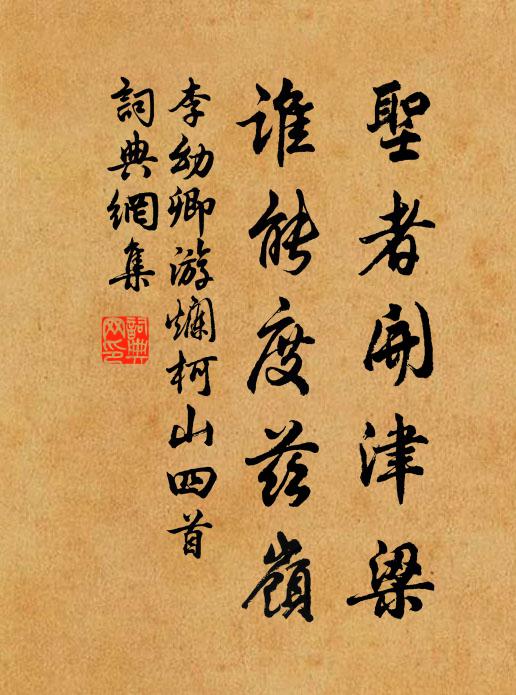 聖者開津梁
誰能度茲嶺
李幼卿游爛柯山四首
詞典網集
詞典
网印